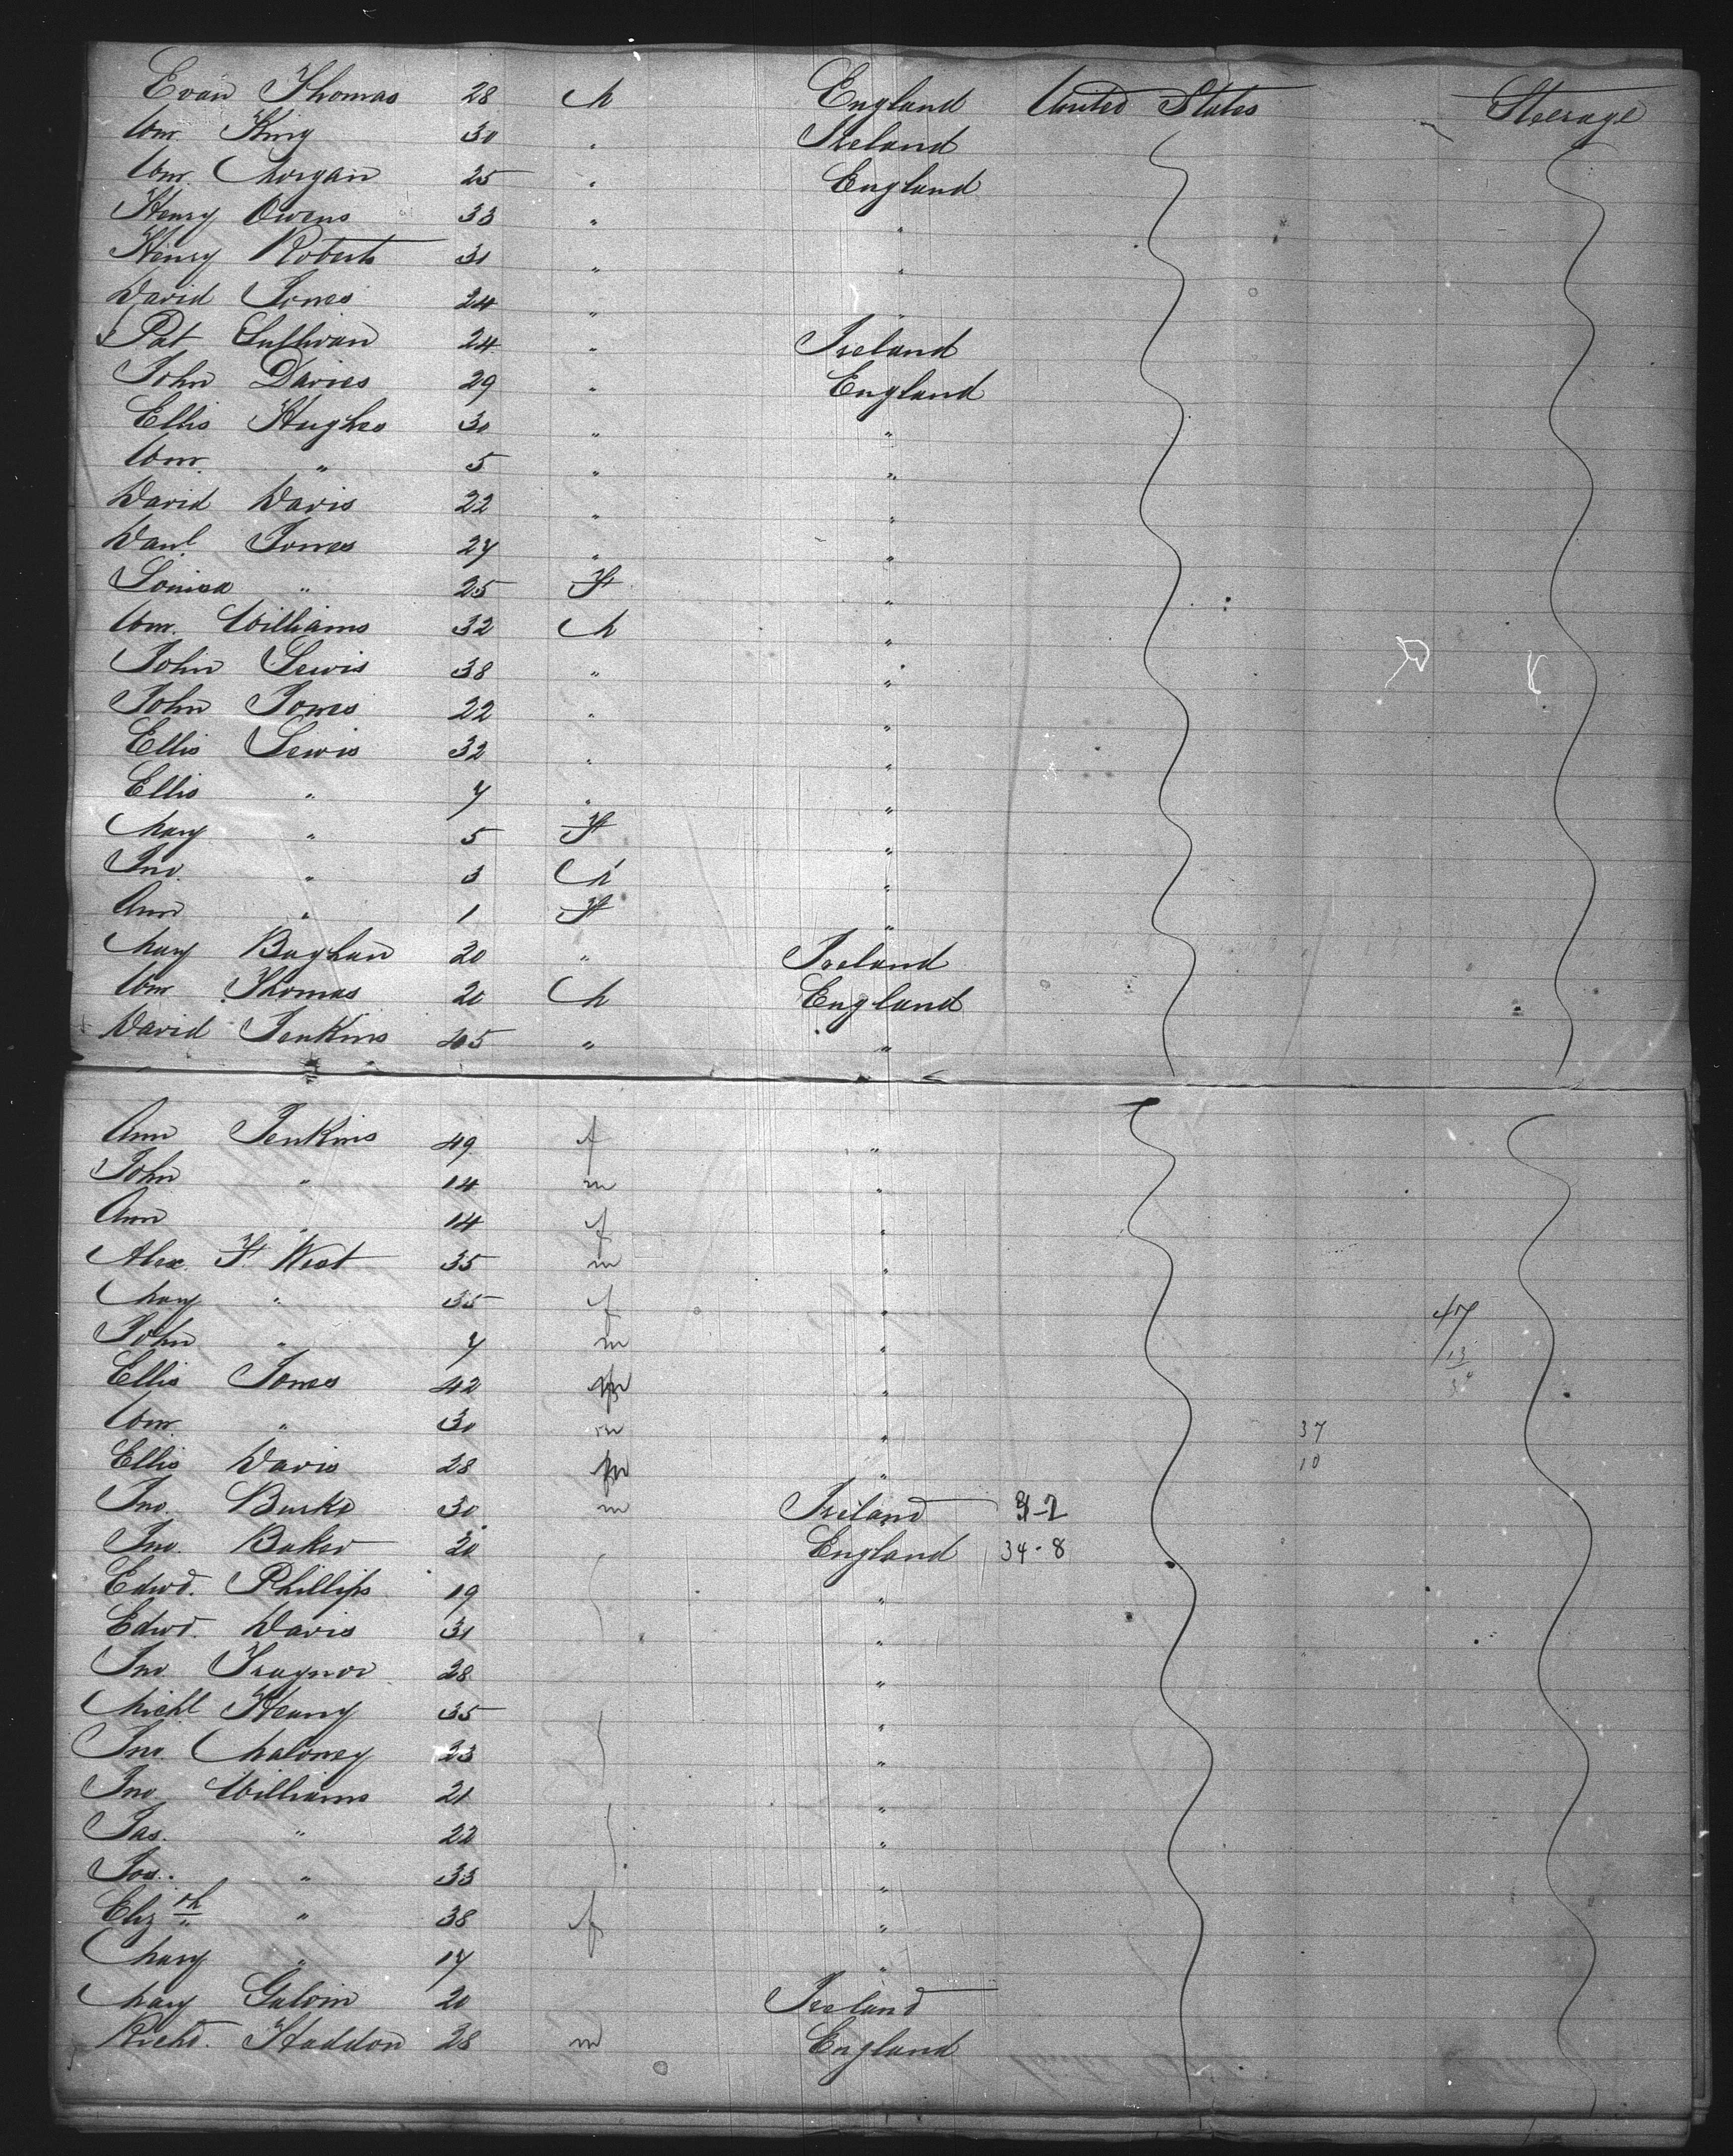 Evan Thomas 28 M England United States Steerage
Wm. King 30 " Ireland
Wm. Morgan 25 " England
Henry Owens 33 " "
Henry Roberts 31 " "
David Jones 24 " "
Pat Sullivan 24 " Ireland
John Davies 29 " England
Ellis Hughes 30 " "
Wm. " 5 " "
David Davis 22 " "
Danl. Jones 27 " "
Louisa " 25 F "
Wm. Williams 32 M "
John Lewis 38 " "
John Jones 22 " "
Ellis Lewis 32 " "
Ellis " 7 " "
Mary " 5 F "
Jno. " 3 M "
Ann " 1 F "
Mary Baghan 20 " Ireland
Wm Thomas 20 M England
David Jenkins 45 " "
Ann Jenkins 49 f "
John " 14 m "
Ann " 14 f "
Alex. F. West 35 m "
Mary " 35 f " 47
John " 7 m " 13
Ellis Jones 42 "
Wm. " 30 m " 37
Ellis Davis 28 " 10
Jno. Burke 30 m Ireland 3-2
Jno. Baker 20 England 34-8
Edwd. Phillips 19 "
Edwd. Davis 31 "
Jno. Traynor 28 "
Michl Heany 35 "
Jno. Maloney 23 "
Jno. Williams 21 "
Jas. " 22 "
Jos. " 33 "
Elizth " 38 f "
Mary " 17 "
Mary Galvin 20 Ireland
Richd. Haddon 28 m England